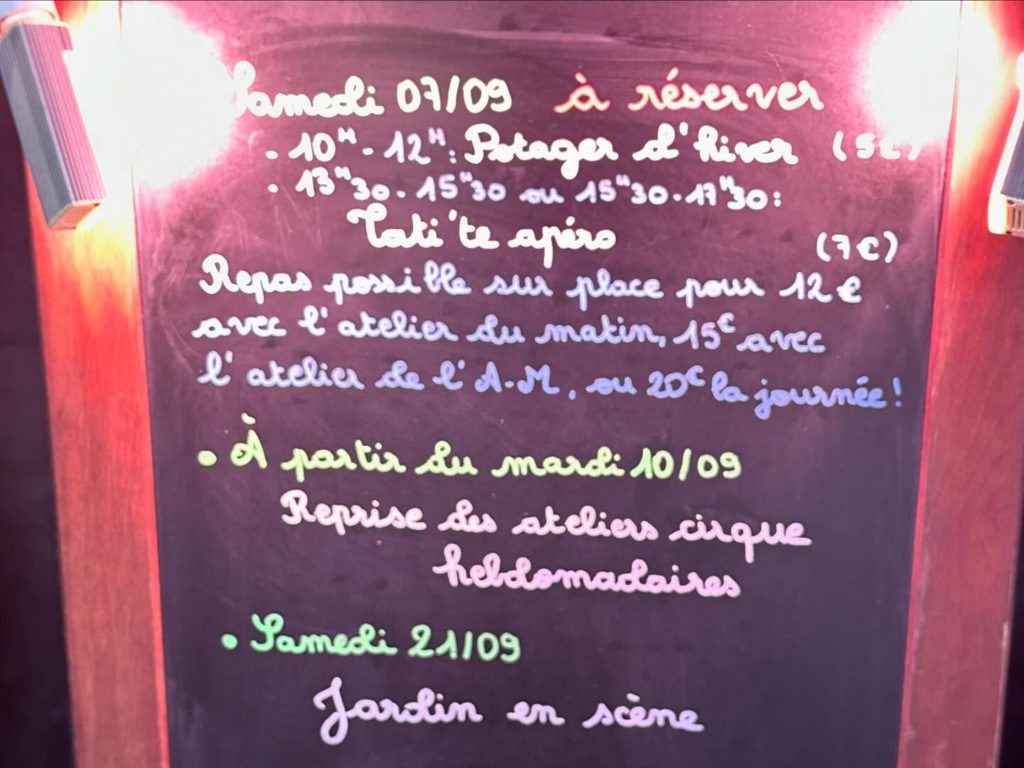 Samedi 07/09 à réserver
• 10H - 12H: Potager d'hiver (5€)
• 13H30 - 15H30 ou 15H30 - 17H30:
Tati'te apéro (7€)
Repas possible sur place pour 12€
avec l'atelier du matin, 15€ avec
l'atelier de l'A-M, ou 20€ la journée!
• À partir du mardi 10/09
Reprise des ateliers cirque
hebdomadaires
• Samedi 21/09
Jardin en scène